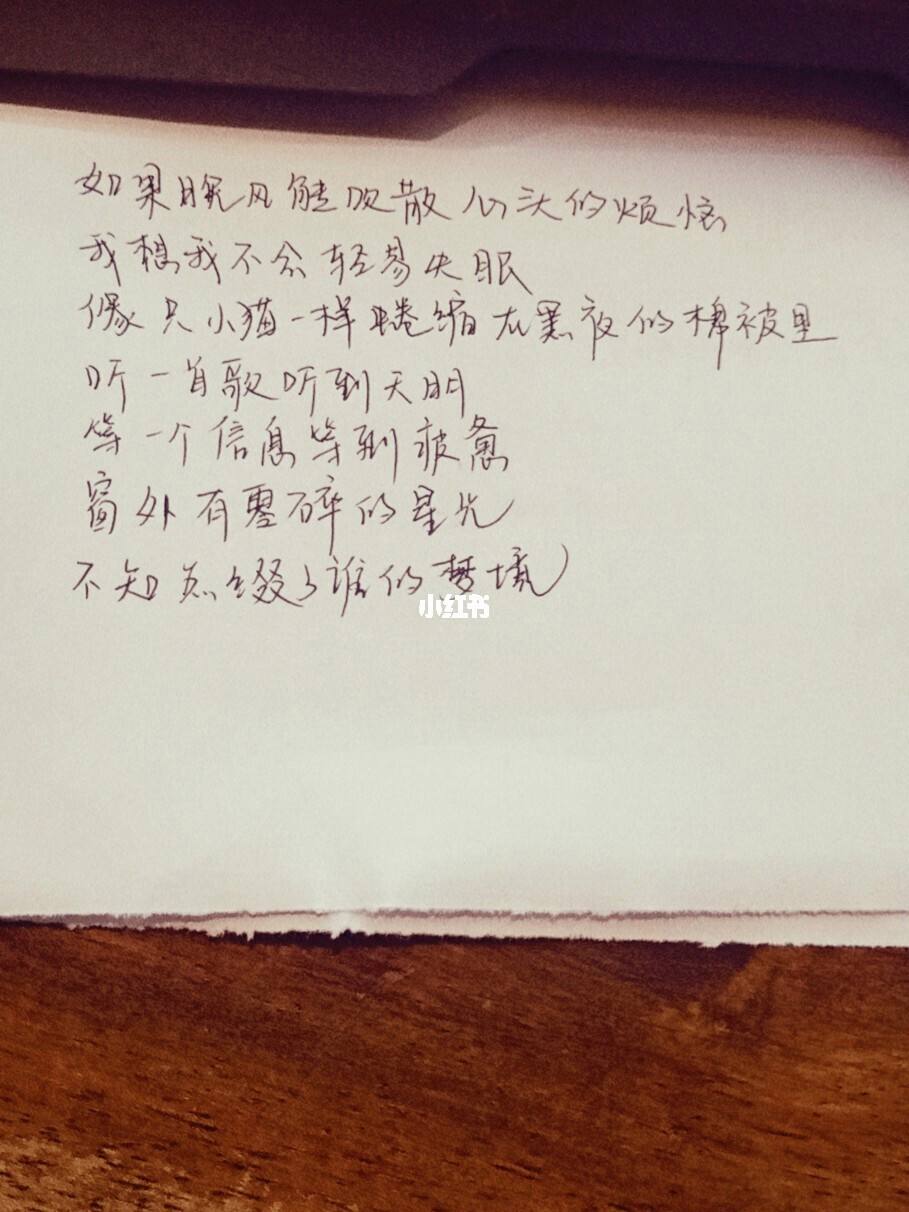 如果晚风能吹散心头的烦恼
我想我不会轻易失眠
像只小猫一样蜷缩在黑夜的棉被里
听一首歌听到天明
等一个信息等到疲惫
窗外有零碎的星光
不知点缀了谁的梦境
小红书